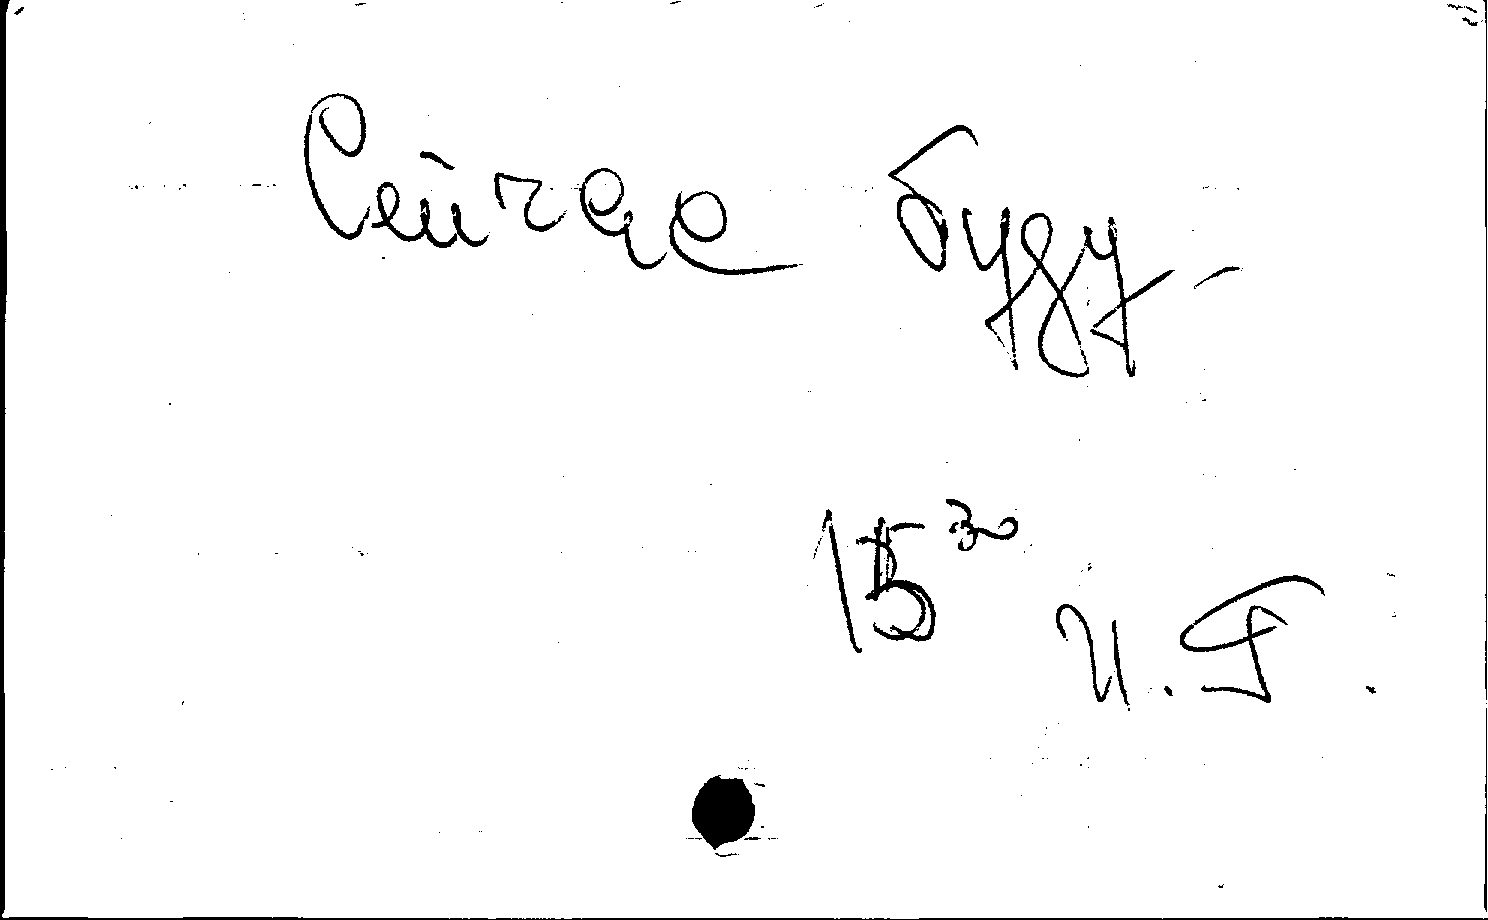 Сейчас буду -
15³⁰
И. Г.